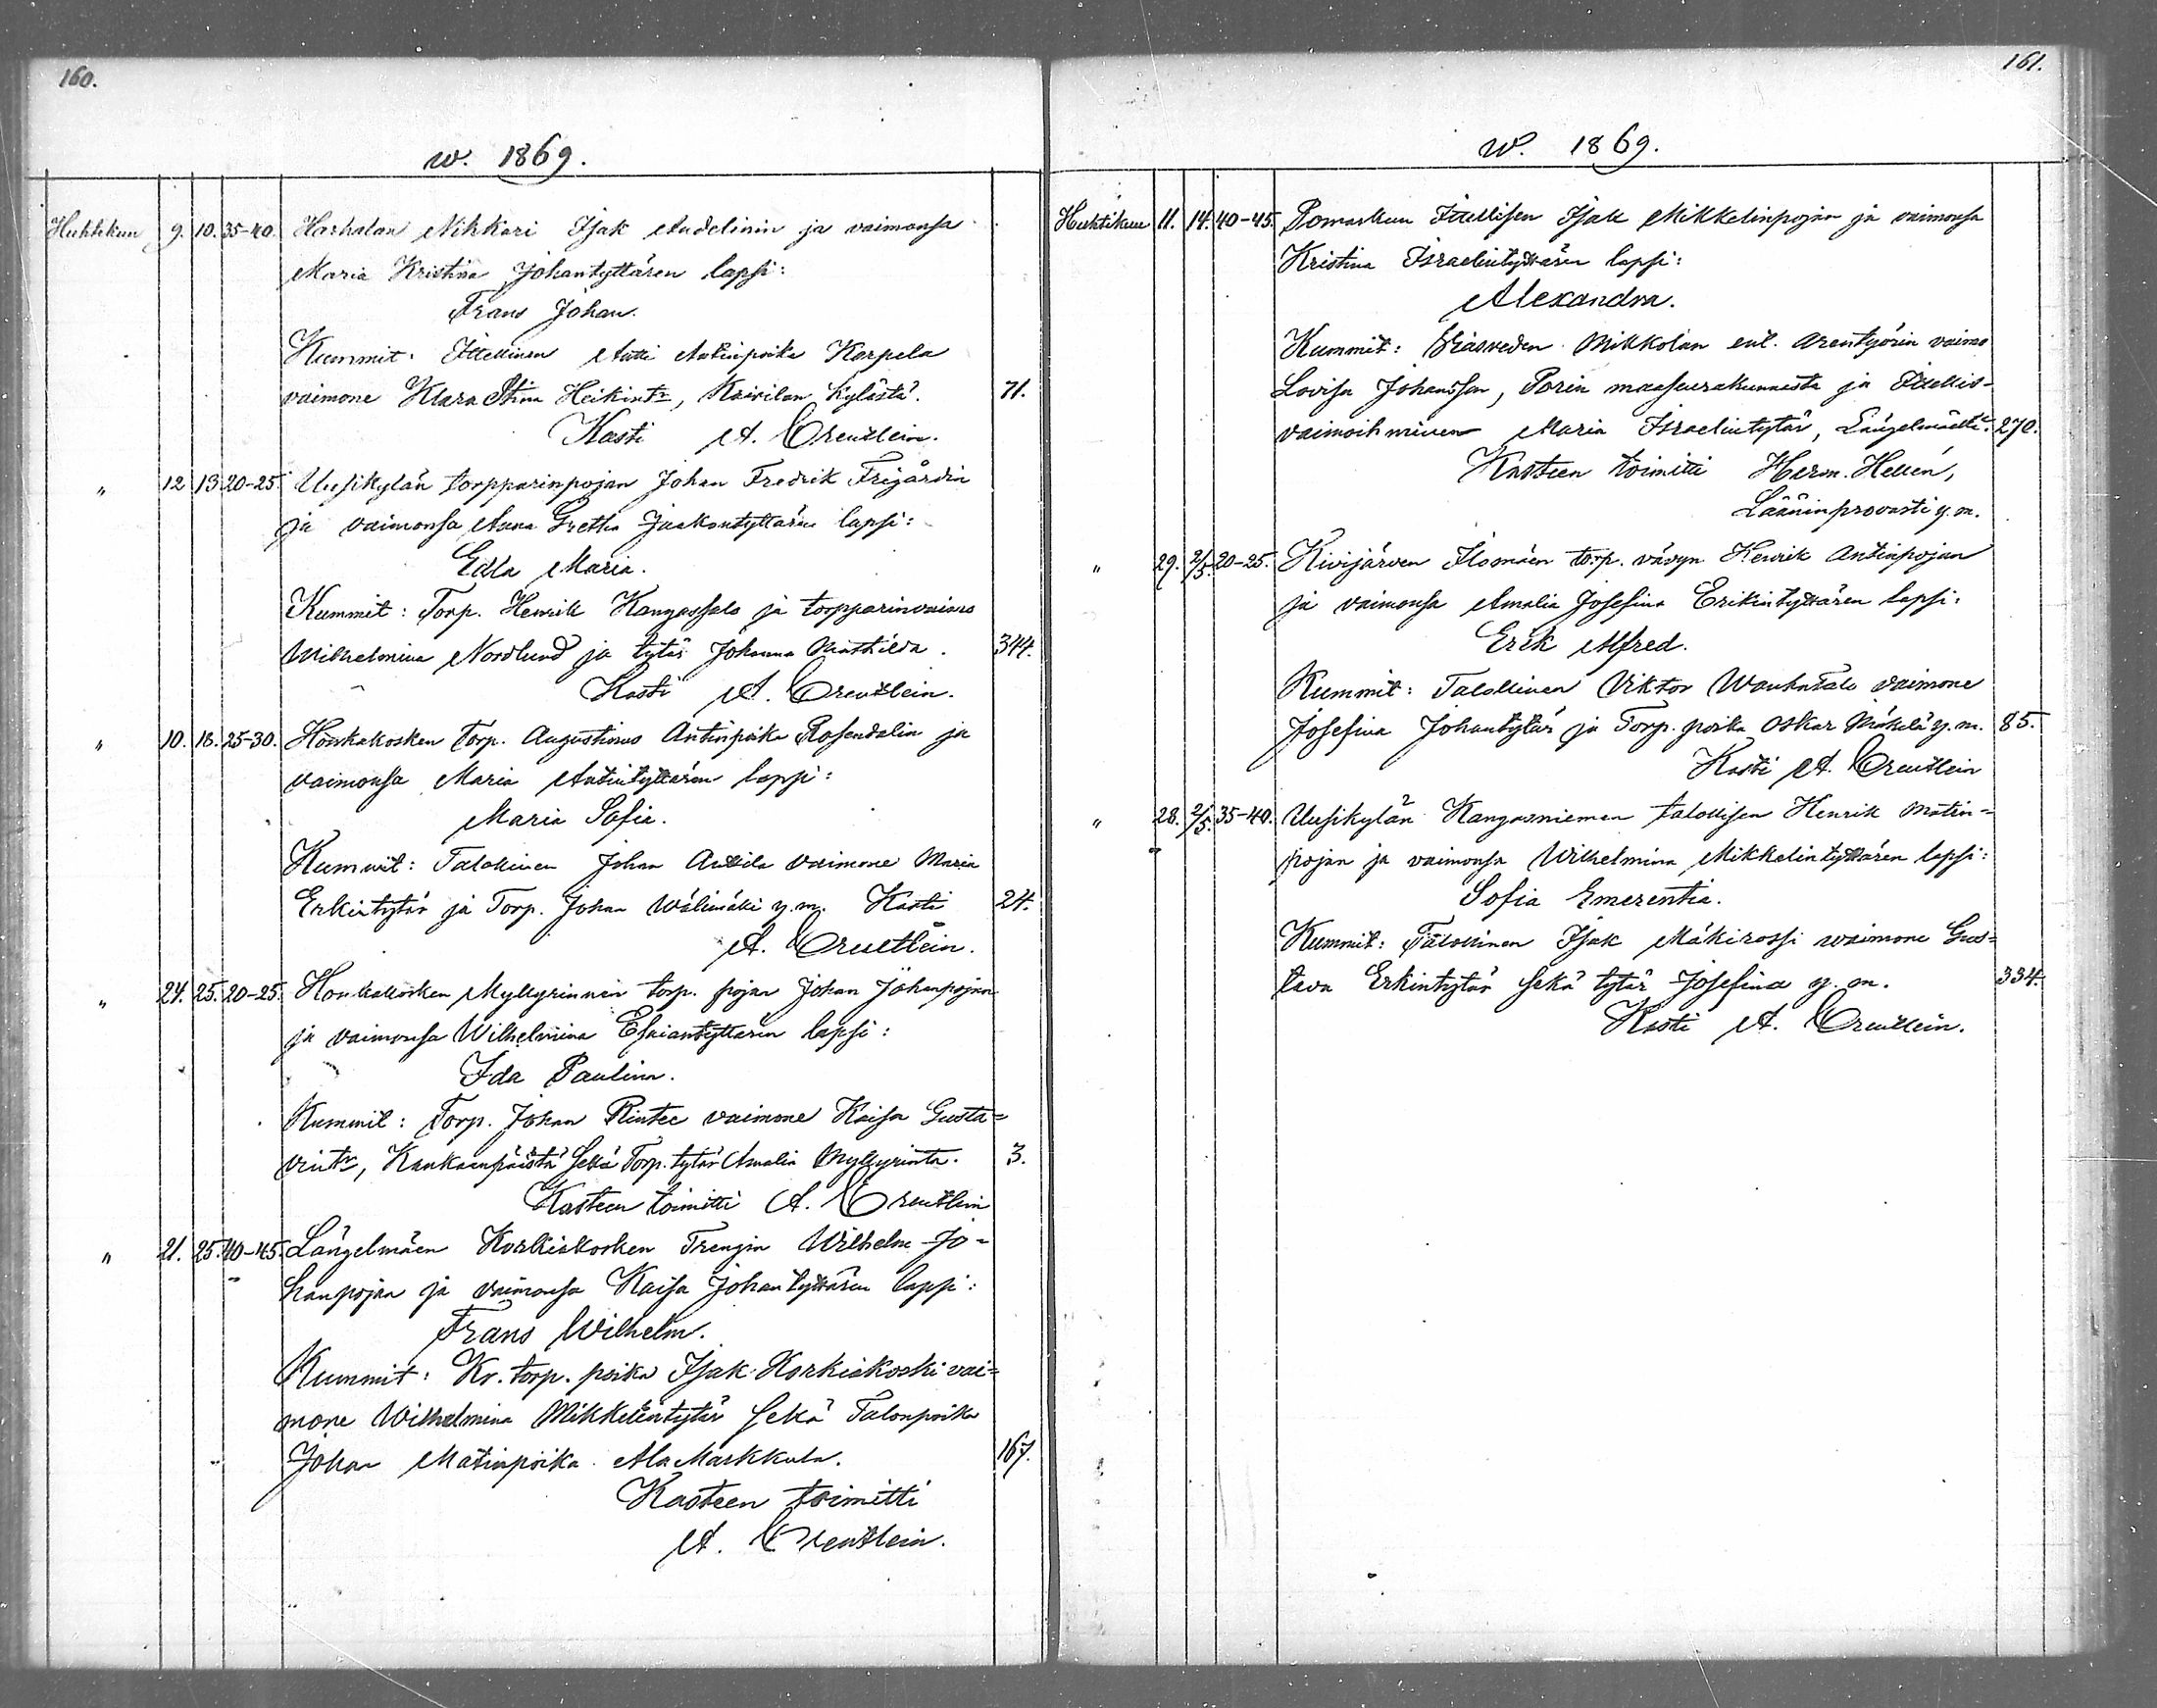 160.
w. 1869.
Huhtikuu 9. 10. 35-40. Harhalan Nikkari Isak Audelinin ja vaimonsa
Maria Kristina Johantyttären lapsi:
Frans Johan.
Kummit: Itellinen Antti Antinpoika Karpela
vaimone Klara Stina Heikintr, Kairilan kylästä. 71.
Kasti A. Creutlein.
" 12 13 20-25. Uusikylän torpparinpojan Johan Fredrik Frigårdin
ja vaimonsa Anna Gretha Jaakontyttären lapsi:
Edla Maria.
Kummit: Torp. Henrik Kangassalo ja torpparinvaimo
Wilhelmina Nordlund ja tytär Johanna Mathilda. 344.
Kasti A. Creutlein.
" 10. 18. 25-30. Honkakosken torp. Augustinus Antinpoika Rosendalin ja
vaimonsa Maria Antintyttären lapsi:
Maria Sofia.
Kummit: Talokinen Johan Anttila vaimone Maria
Erkintytär ja Torp. Johan Wälimäki y.m. Kasti 24.
A. Creutlein.
" 24. 25. 20-25. Honkakosken Myllyrinnen torp. pojan Johan Johanpojan
ja vaimonsa Wilhelmina Esaiantyttären lapsi:
Ida Paulina.
Kummit: Torp. Johan Rintee vaimone Kaisa Gusta=
vintr, Kankaanpäästä sekä Torp. tytär Amalia Myllyrinta. 3.
Kasteen toimitti A. Creutlein
" 21. 25. 40-45. Längelmäen Korkiakosken Trengin Wilhelm Jo-
hanpojan ja vaimonsa Kaisa Johantyttären lapsi:
Frans Wilhelm.
Kummit: Kr. torp. poika Isak Korkiakoski vai=
mone Wilhelmina Mikkelintytär sekä Talonpoika
Johan Matinpoika Ala Markkula. 167.
Kasteen toimitti
A. Creutlein.
161.
w. 1869.
Huhtikuu 11. 14. 40-45. Pomarkun Itsellisen Isak Mikkelinpojan ja vaimonsa
Kristina Israelintyttären lapsi:
Alexandra.
Kummit: Mikkolan ent. arentyörin vaimo
Lovisa Johansson, Porin maaseurakunnasta ja Itsellis-
vaimoihminen Maria Israelintytär, Längelmäeltä. 270.
Kasteen toimitti Herm. Hellén,
Lääninprovasti y.m.
" 29. 2/5. 20-25. Kivijärven Ilomäen torp. vävyn Henrik Antinpojan
ja vaimonsa Amalia Josefina Erikintyttären lapsi:
Erik Alfred.
Kummit: Talollinen Viktor Wanhatalo vaimone
Josefina Johantytär ja Torp. poika Oskar Mäkelä y.m. 85.
Kasti A. Creutlein
" 28. 2/5. 35-40. Uusikylän Kangasnieman talollisen Henrik Matin=
pojan ja vaimonsa Wilhelmina Mikkelintyttären lapsi:
Sofia Emerentia.
Kummit: Talollinen Isak Mäkirossi waimone Gus=
tava Erkintytär sekä tytär Josefina y. m. 334.
Kasti A. Creutlein.